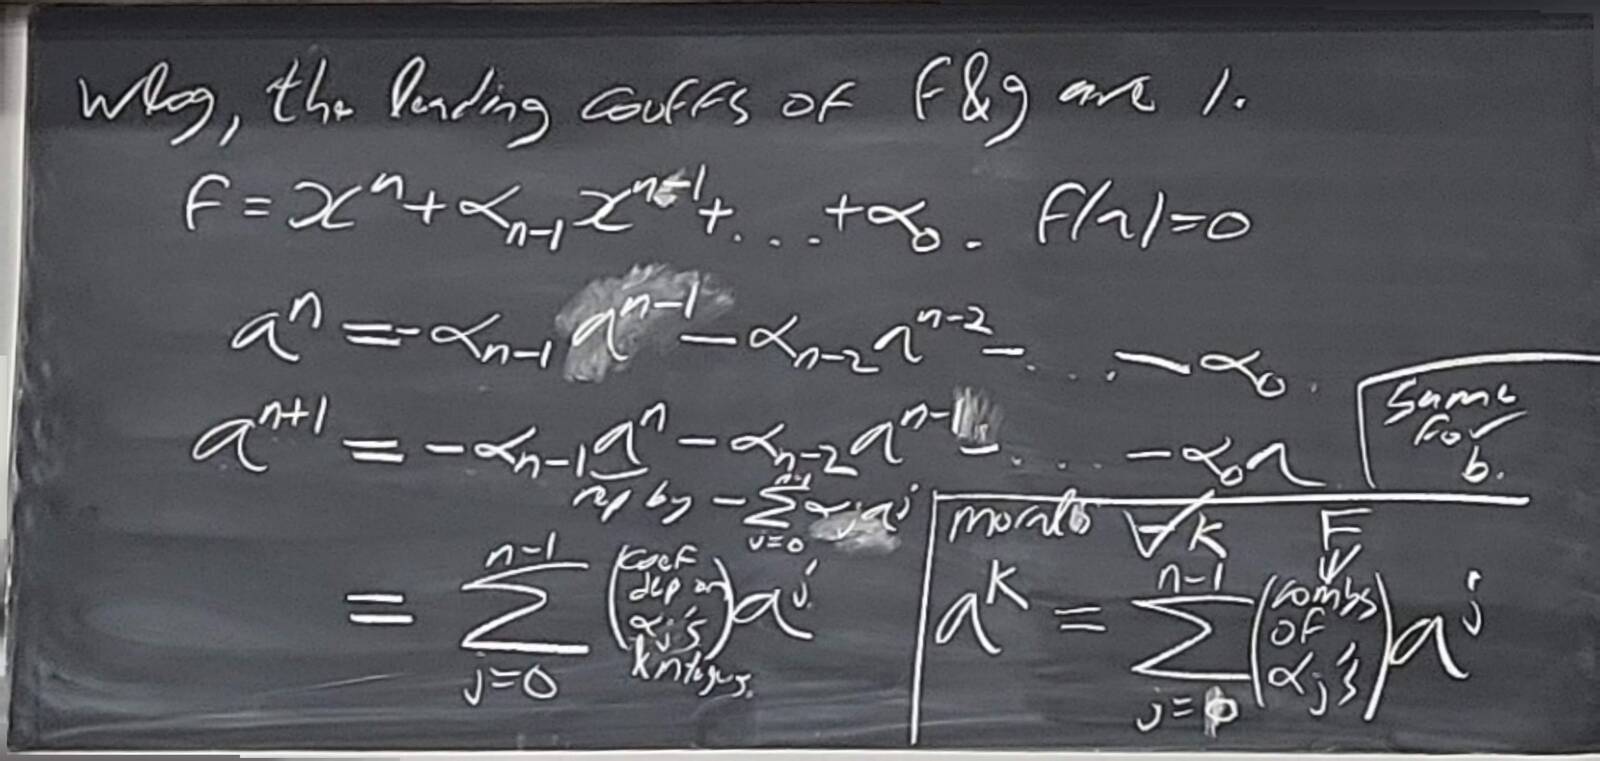 Wlog, the leading coeffs of f & g are 1.
f = x^n + α_{n-1} x^{n-1} + ... + α_0. f(a) = 0
a^n = -α_{n-1} a^{n-1} - α_{n-2} a^{n-2} - ... - α_0.
a^{n+1} = -α_{n-1} a^n - α_{n-2} a^{n-1} - ... - α_0 a
rep by - ∑_{j=0}^{n-1} α_j a^j
= ∑_{j=0}^{n-1} (coef dep on α_j's & integers) a^j
Same
for
b.
morals ∀k F
a^k = ∑_{j=0}^{n-1} (combs of α_j's) a^j